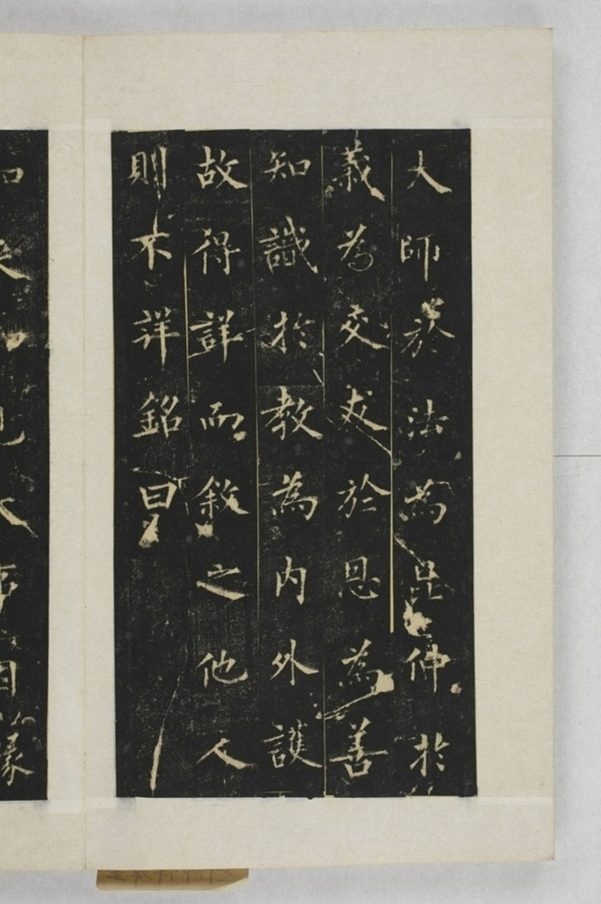 大師於法為昆仲於
義為交友於恩為善
知識於教為內外護
故得詳而敘之他人
則不詳銘曰